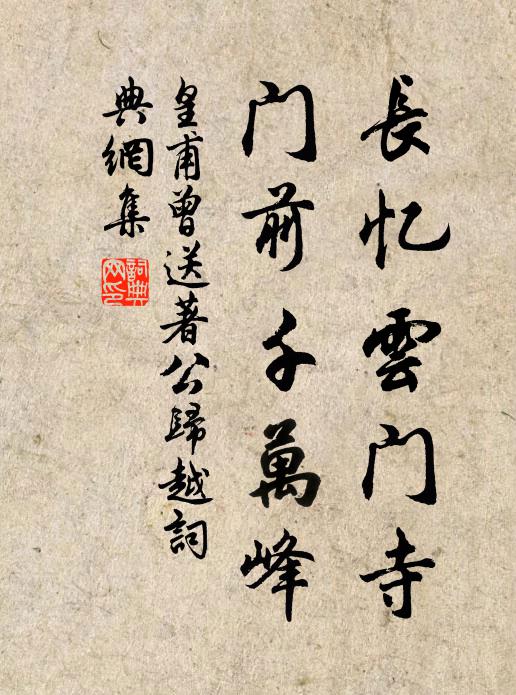 長忆雲门寺
门前千萬峰
皇甫曾送著公歸越詞
典網集
詞典网印